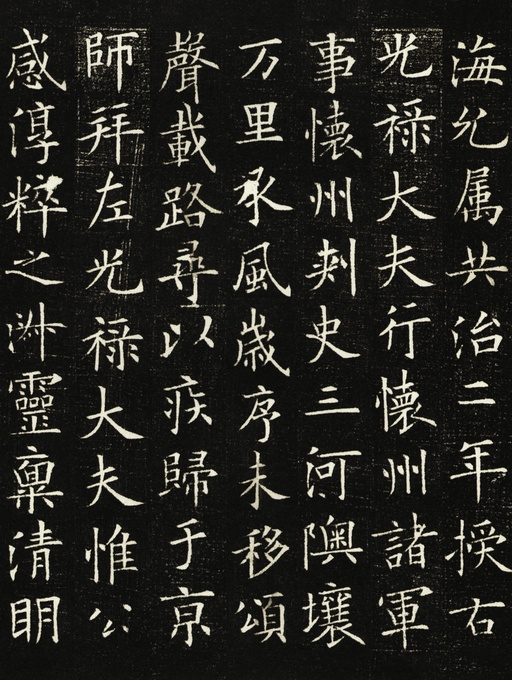 海允属共治二年授右
光禄大夫行懷州諸軍
事懷州刾史三河隩壤
万里承風歲序未移頌
聲載路尋以疾歸于亰
師拜左光禄大夫惟公
感淳粹之淑靈稟清明